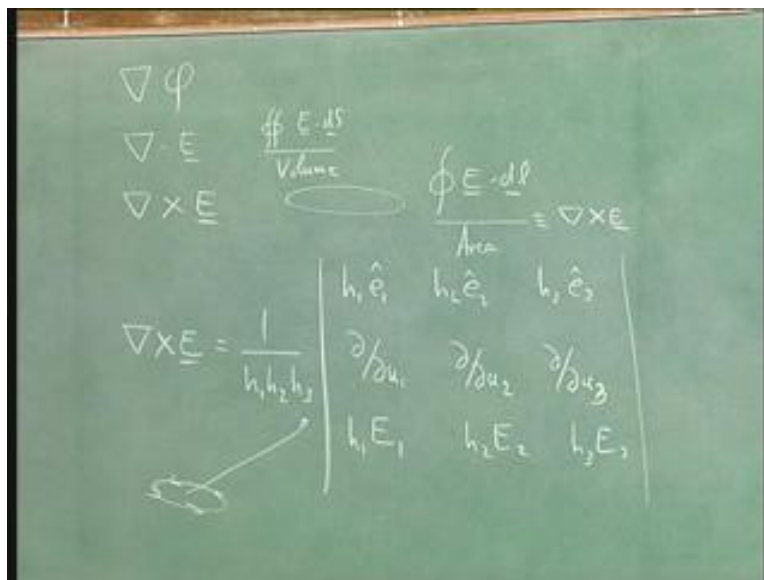 ∇φ
∇·E ∯ E·dS / Volume
∇×E ∮ E·dl / Area = ∇×E
h₁ê₁ h₂ê₂ h₃ê₃
∇×E = 1 / h₁h₂h₃ ∂/∂u₁ ∂/∂u₂ ∂/∂u₃
h₁E₁ h₂E₂ h₃E₃